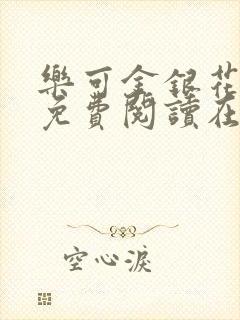 樂可金銀花
免費閱讀在
空心淚